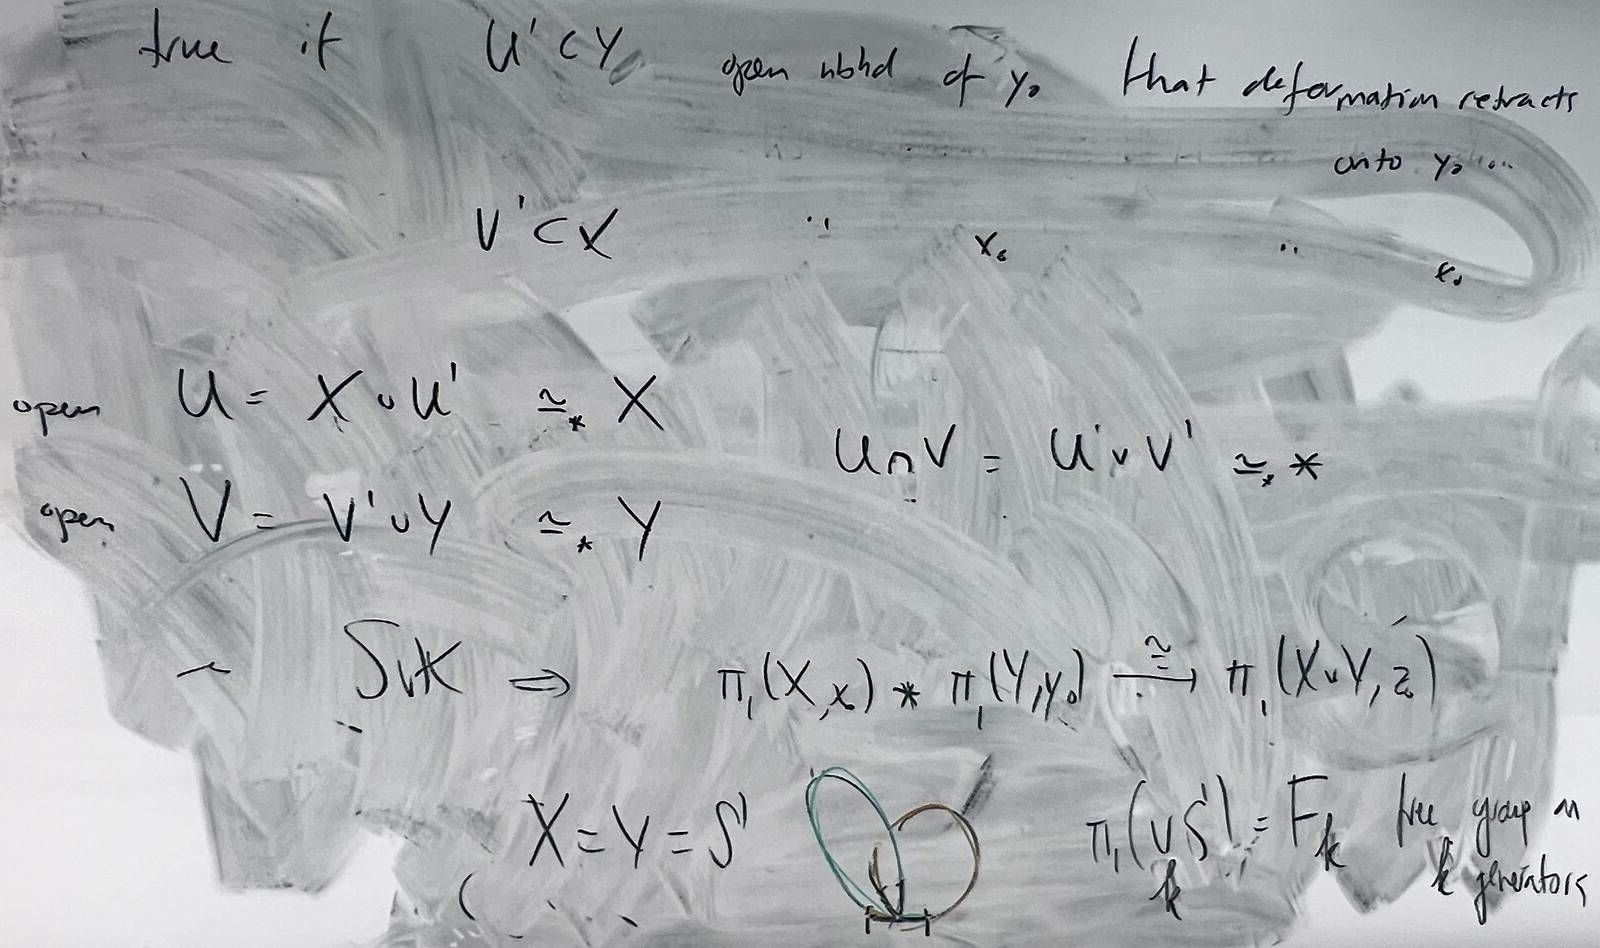 true if U' ⊂ Y open nbhd of y₀ that deformation retracts
onto y₀ ...
V' ⊂ X " x₀ " x₀
open U = X ∪ U' ≃* X
U∩V = U' ∨ V' ≃* *
open V = V' ∪ Y ≃* Y
~ SvK ⇒ π₁(X,x₀) * π₁(Y,y₀) ≅→ π₁(X∨Y, z₀)
X = Y = S¹
π₁(∨ₖ S¹) = Fₖ free group on
k generators